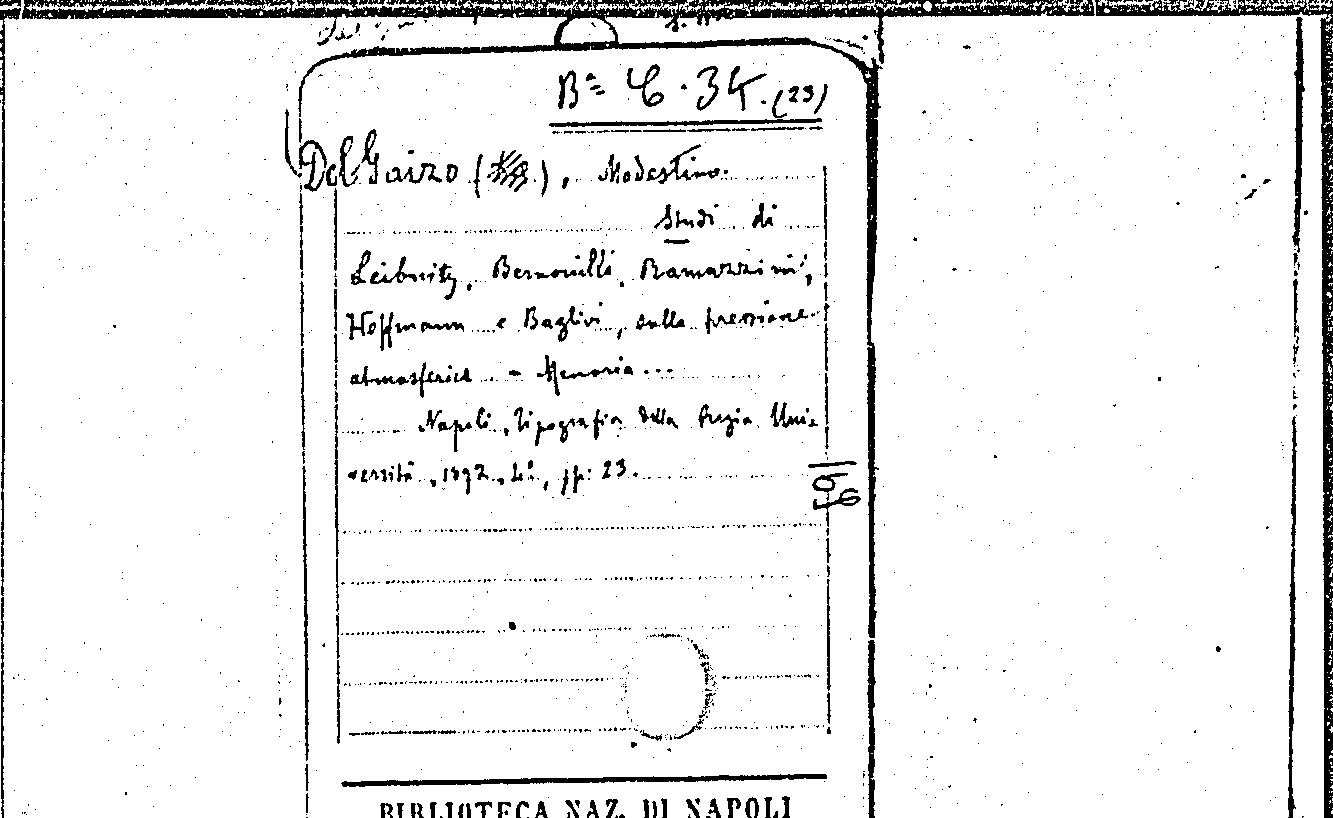 Bª C.34.(23)
Del Gaizo ( ), Modestino.
Studi di
Leibnitz, Bernouilli, Ramazzini,
Hoffmann e Baglivi, sulla pressione
atmosferica - Memoria...
Napoli, Tipografia della Regia Uni-
versità, 1892, 4º, pp. 23.
BIBLIOTECA NAZ. DI NAPOLI